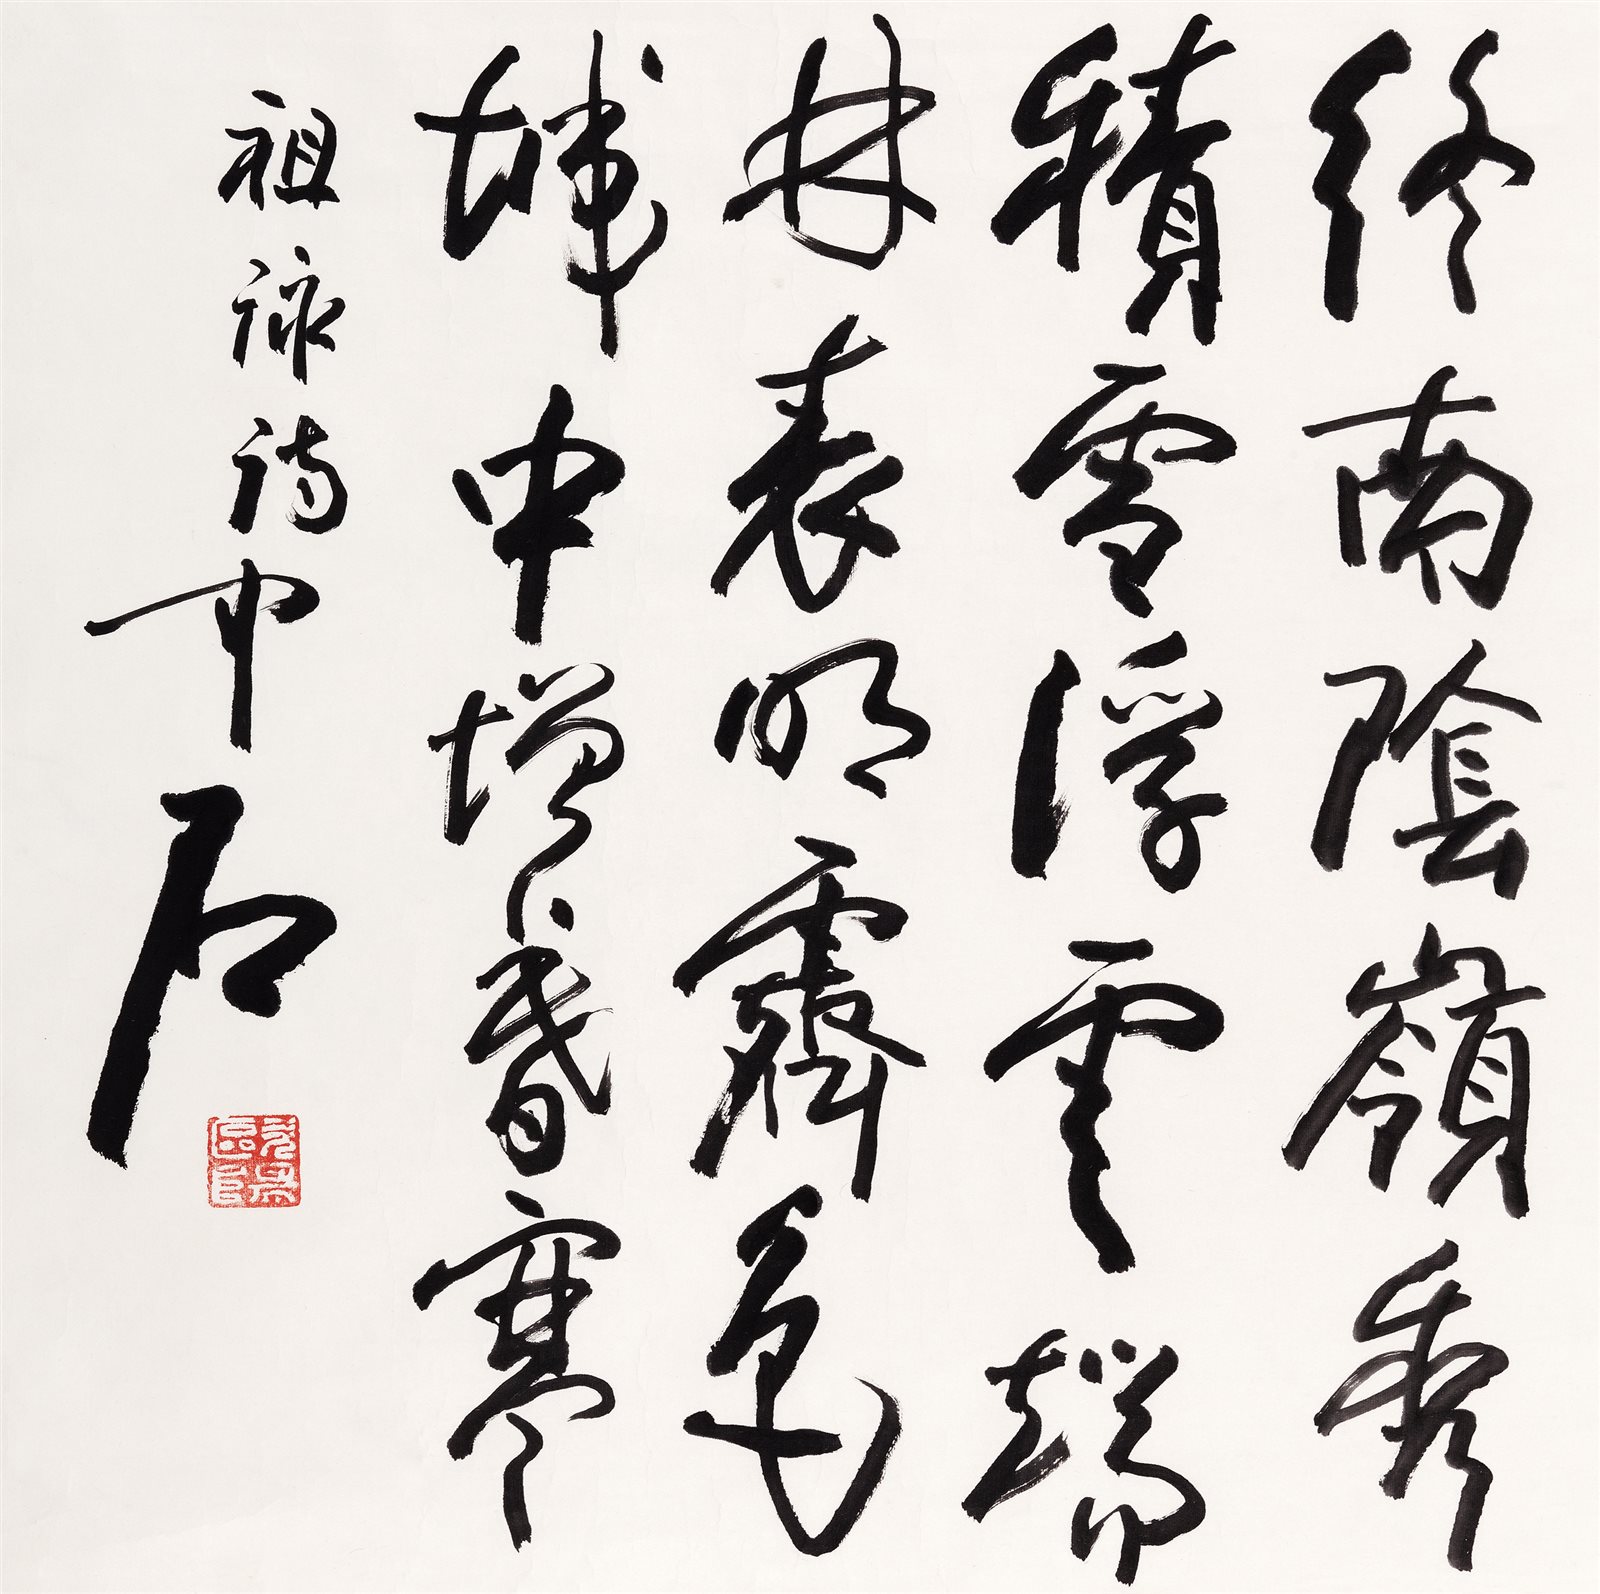 終南陰嶺秀
積雪浮雲端
林表明霽色
城中增暮寒
祖詠詩中石